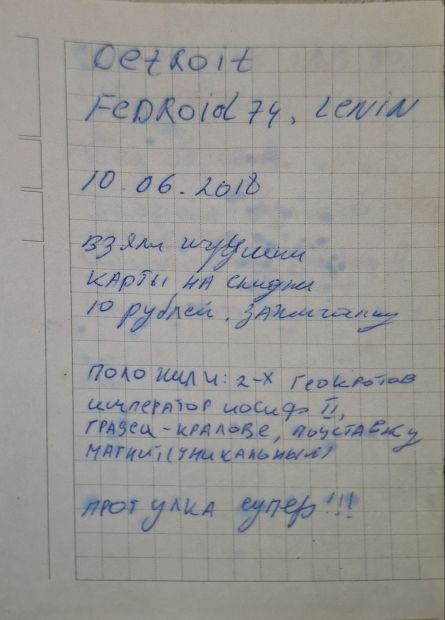 Detroit
FeDRoid 74, LeNiN
10.06.2018
Взяли игрушки
карты на скидки
10 рублей, зажигалку
Положили: 2-х геокротов
император Иосиф II,
градец-кралове, подставку
магнит, (уникальный)
прогулка супер!!!